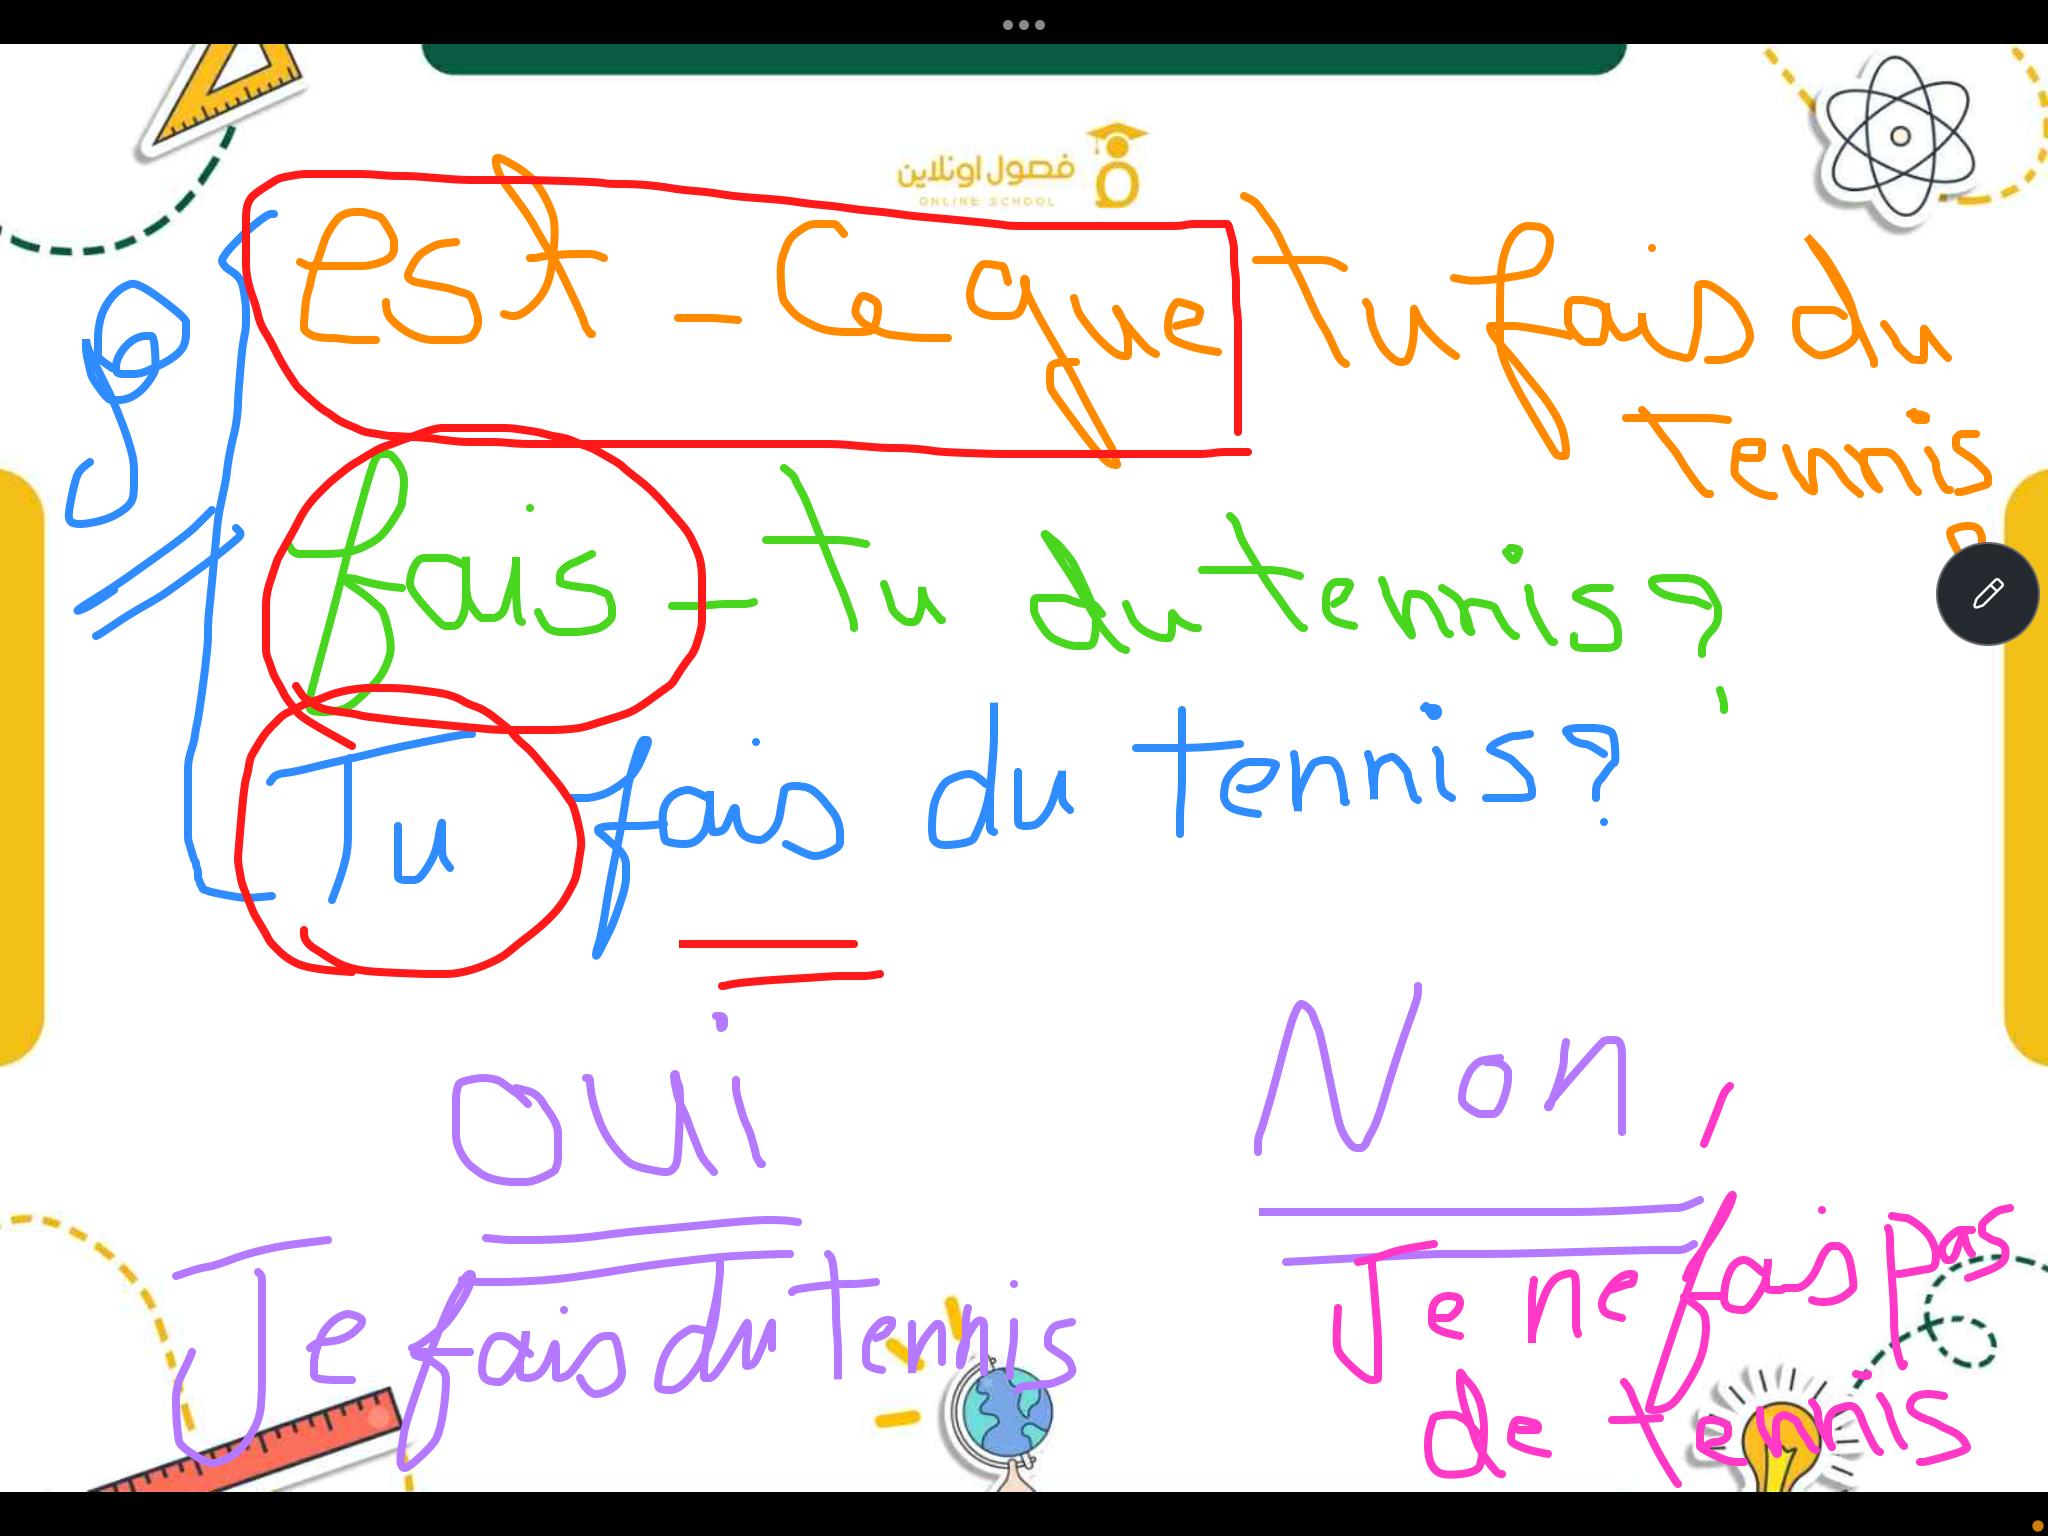 فصول اونلاين
ONLINE SCHOOL
est - Ce que tu fais du
tennis ?
fais - tu du tennis ?
Tu fais du tennis ?
oui
Je fais du tennis
Non,
Je ne fais pas
de tennis